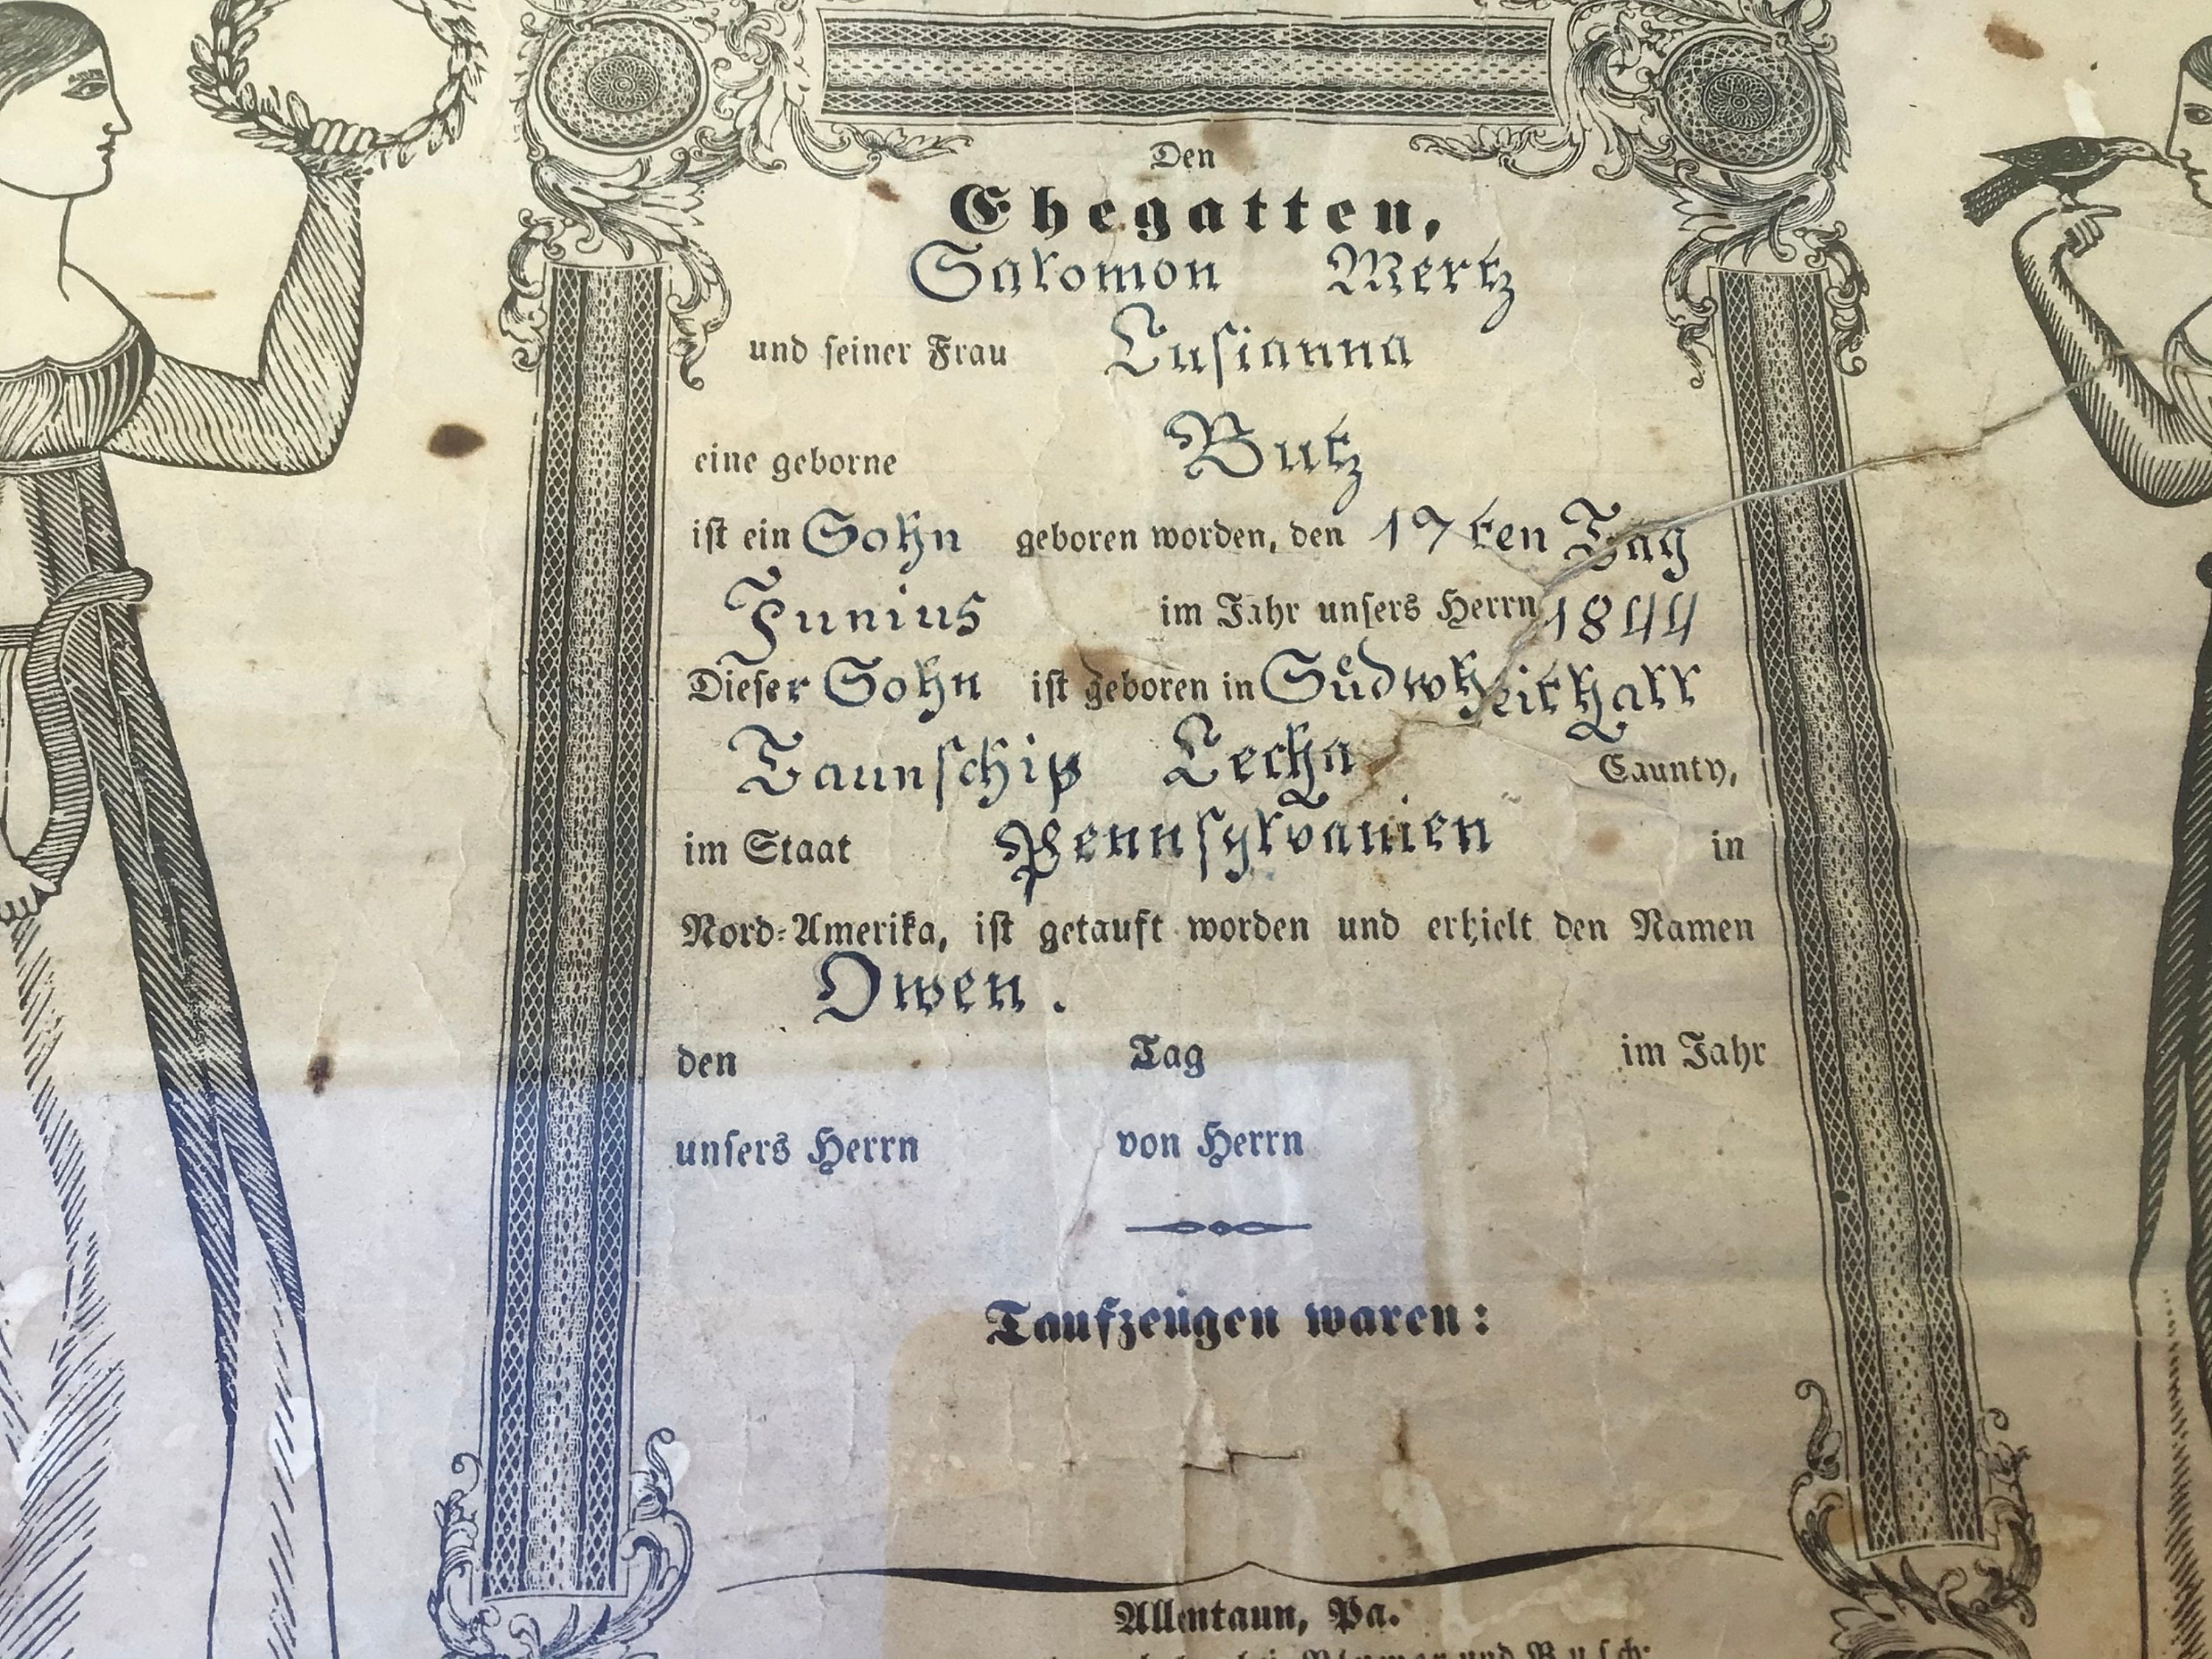 Den
Ehegatten,
Salomon Mertz
und seiner Frau Lusianna
eine geborne Butz
ist ein Sohn geboren worden, den 17ten Tag
Junius im Jahr unsers Herrn 1844
Dieser Sohn ist geboren in Südwheithall
Taunschip Lecha Caunty,
im Staat Pennsylvanien in
Nord-Amerika, ist getauft worden und erhielt den Namen
Owen.
den Tag im Jahr
unsers Herrn von Herrn
Taufzeugen waren:
Allentaun, Pa.
bei Blumer und Busch: